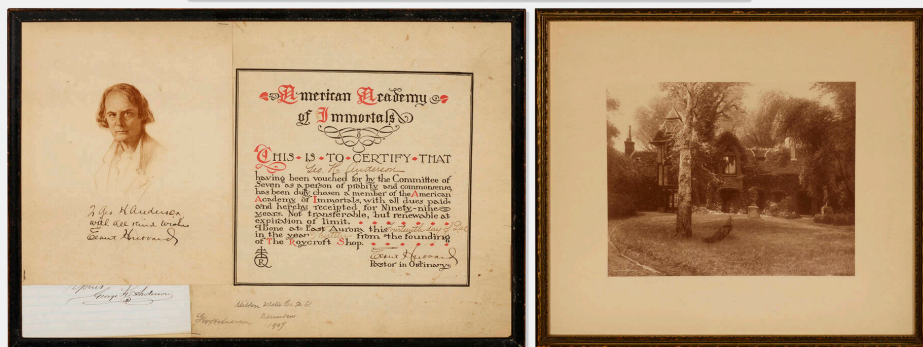 To Geo. H. Anderson
with all kind wishes
Elbert Hubbard
American Academy
of Immortals
THIS IS TO CERTIFY THAT
Geo. H. Anderson
having been vouched for by the Committee of
Seven as a person of probity and commonsense,
has been duly chosen a member of the American
Academy of Immortals, with all dues paid
and hereby receipted for Ninety-nine
years. Not transferable, but renewable at
expiration of limit.
Done at East Aurora this day of Dec
in the year from the founding
of The Roycroft Shop.
Elbert Hubbard
Pastor in Ordinary
R
George H. Anderson
1909